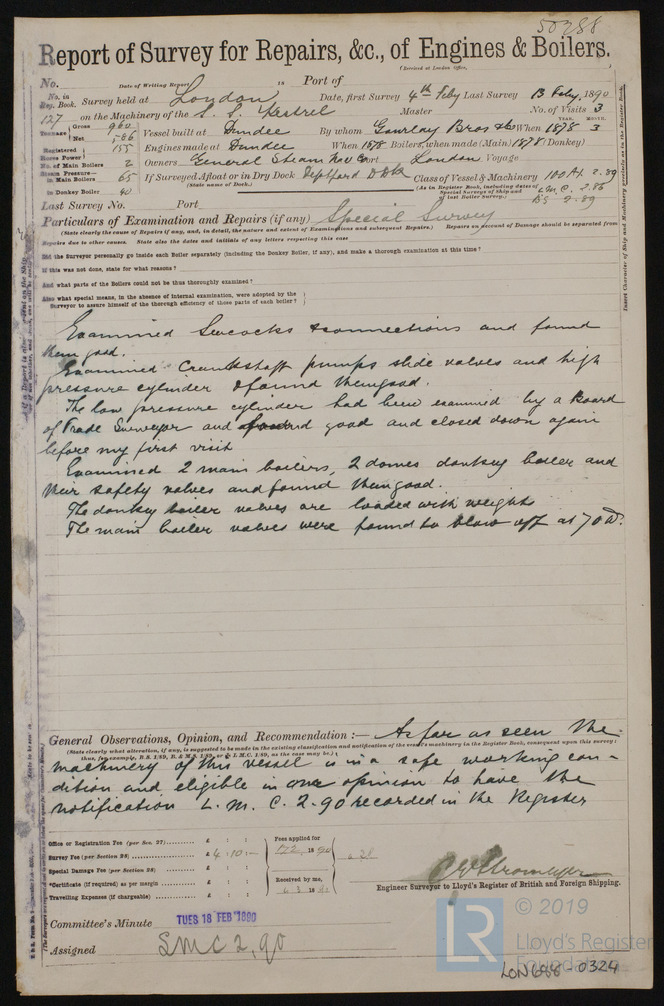 50288
Report of Survey for Repairs, &c., of Engines & Boilers.
(Received at London Office,
No. Date of Writing Report 18 Port of
No. in Reg. Book. Survey held at London Date, first Survey 4th Feby Last Survey 13 Feby, 1890
127 on the Machinery of the S. S. Kestrel Master No. of Visits 3
Tonnage Gross 960 Net 566 Vessel built at Dundee By whom Gourlay Bros & Co When 1878 YEAR. MONTH. 3
Registered Horse Power 155 Engines made at Dundee When 1878 Boilers, when made (Main) 1878 (Donkey)
No. of Main Boilers 2 Owners General Steam Nav Co Port London Voyage
Steam Pressure in Main Boilers 65 If Surveyed Afloat or in Dry Dock Deptford D Dk Class of Vessel & Machinery 100 A1 2.89
(State name of Dock.) (As in Register Book, including dates of Special Surveys of Ship and of last Boiler Survey.) L.M.C. 2.86
in Donkey Boiler 40 BS 2.89
Last Survey No. Port
Particulars of Examination and Repairs (if any) Special Survey
(State clearly the cause of Repairs if any, and, in detail, the nature and extent of Examinations and subsequent Repairs.) Repairs on account of Damage should be separated from
Repairs due to other causes. State also the dates and initials of any letters respecting this case
Did the Surveyor personally go inside each Boiler separately (including the Donkey Boiler, if any), and make a thorough examination at this time?
If this was not done, state for what reasons?
And what parts of the Boilers could not be thus thoroughly examined?
Also what special means, in the absence of internal examination, were adopted by the
Surveyor to assure himself of the thorough efficiency of those parts of each boiler?
Examined Seacocks & connections and found
them good.
Examined Crankshaft pumps slide valves and high
pressure cylinder & found them good.
The low pressure cylinder had been examined by a Board
of Trade Surveyor and found good and closed down again
before my first visit
Examined 2 main boilers, 2 domes donkey boiler and
their safety valves and found them good.
The donkey boiler valves are loaded with weights
The main boiler valves were found to blow off at 70
General Observations, Opinion, and Recommendation :— As far as seen the
(State clearly what alteration, if any, is suggested to be made in the existing classification and notification of the vessel's machinery in the Register Book, consequent upon this survey:
thus, for example, B.S. 1/89, B. & M.S. 1/89, or L.M.C. 1/89, as the case may be.)
machinery of this vessel is in a safe working con-
dition and eligible in our opinion to have the
notification L. M. C. 2.90 recorded in the Register
Office or Registration Fee (per Sec. 27) £ : : Fees applied for
Survey Fee (per Section 28) £ 4 : 10 : — 18 90
Special Damage Fee (per Section 28) £ : :
*Certificate (if required) as per margin £ : : Received by me,
Travelling Expenses (if chargeable) £ : : 18
Engineer Surveyor to Lloyd's Register of British and Foreign Shipping.
Committee's Minute TUES 18 FEB 1890
Assigned LMC 2,90
© 2019
LR
Lloyd's Register
Foundation
LON688-0324